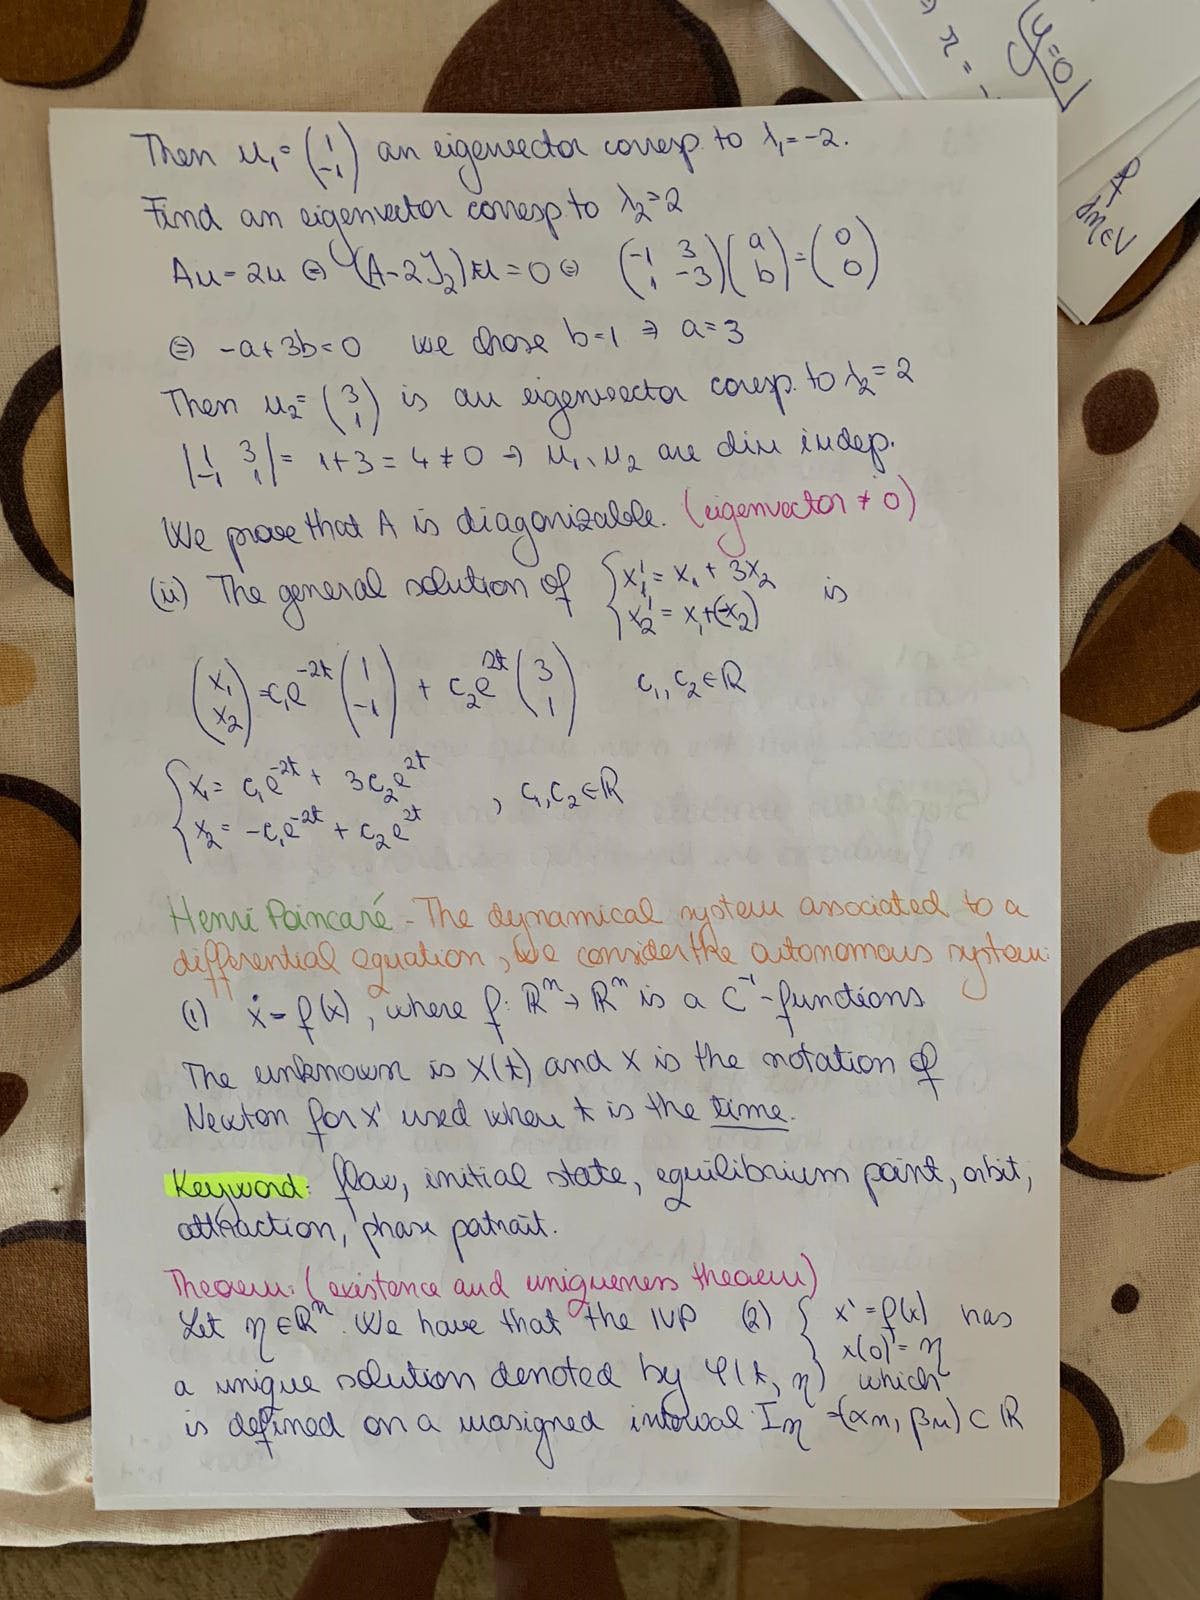 Then u₁ = (1 -1) an eigenvector corresp. to λ₁ = -2.
Find an eigenvector corresp to λ₂ = 2
Au = 2u ⇔ (A - 2I₂)u = 0 ⇔ (-1 3 1 -3)(a b) = (0 0)
⇔ -a + 3b = 0 we chose b = 1 ⇒ a = 3
Then u₂ = (3 1) is an eigenvector coresp. to λ₂ = 2
|1 3 -1 1| = 1 + 3 = 4 ≠ 0 ⇒ u₁, u₂ are lin indep.
We prove that A is diagonizable. (eigenvector ≠ 0)
(ii) The general solution of { x₁' = x₁ + 3x₂ is
x₂' = x₁ + (-x₂)
(x₁ x₂) = c₁e^-2t (1 -1) + c₂e^2t (3 1) c₁, c₂ ∈ ℝ
{ x₁ = c₁e^-2t + 3c₂e^2t , c₁, c₂ ∈ ℝ
x₂ = -c₁e^-2t + c₂e^2t
Henri Poincaré - The dynamical system associated to a
differential equation, We consider the autonomous system:
(1) ẋ = f(x), where f: ℝⁿ → ℝⁿ is a C⁻¹-functions
The unknown is x(t) and x is the notation of
Newton for x' used when t is the time.
Keyword: flow, initial state, equilibrium point, orbit,
attraction, phase patrait.
Theorem: (existence and uniqueness theorem)
Let η ∈ ℝⁿ. We have that the IVP (2) { x' = f(x) has
x(0) = η
a unique solution denoted by φ(t, η) which
is defined on a interval Iη = (αη, βη) ⊂ ℝ
y=0
⇒ x =